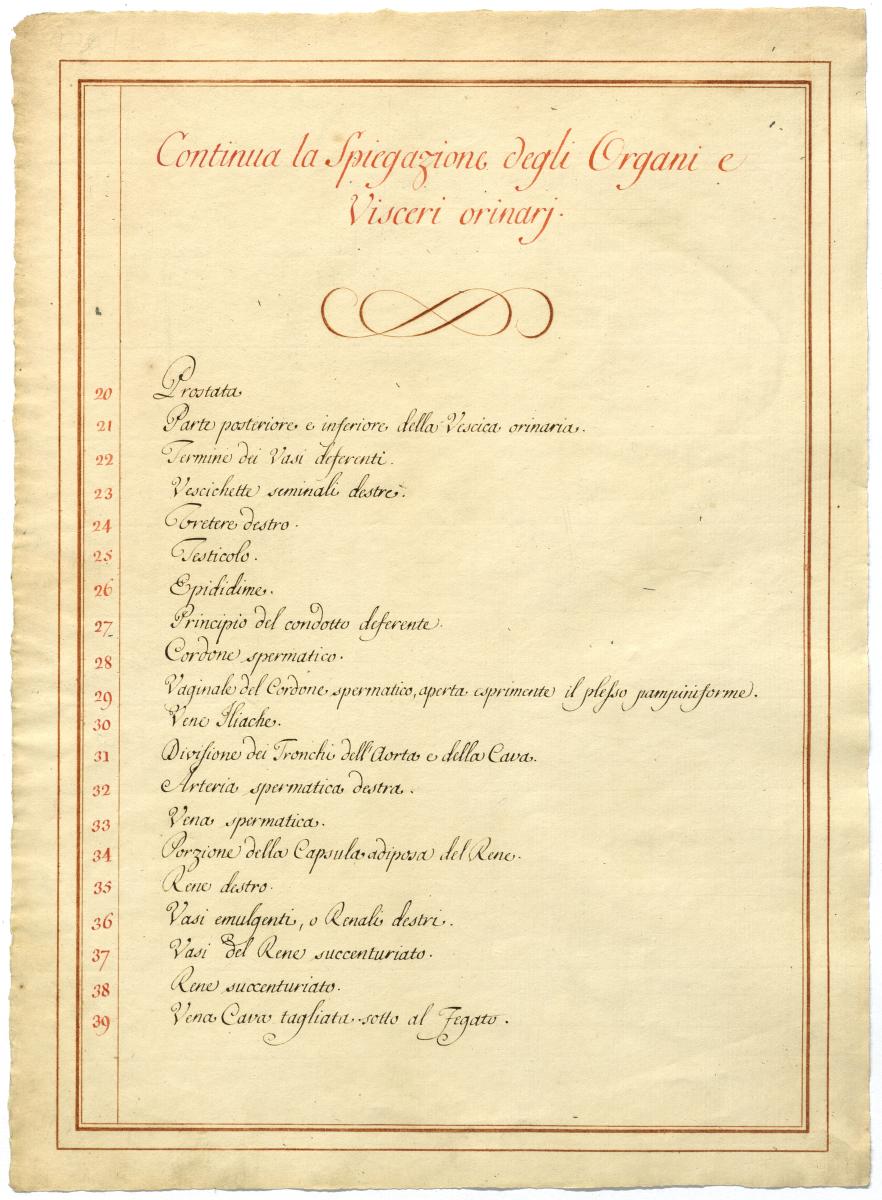 Continua la Spiegazione degli Organi e
Visceri orinarj.
20 Prostata
21 Parte posteriore e inferiore della Vescica orinaria.
22 Termine dei Vasi deferenti.
23 Vescichette seminali destre.
24 Uretere destro.
25 Testicolo.
26 Epididime.
27 Principio del condotto deferente.
28 Cordone spermatico.
29 Vaginale del Cordone spermatico, aperta esprimente il plesso pampiniforme.
30 Vene Iliache.
31 Divisione dei Tronchi dell'Aorta e della Cava.
32 Arteria spermatica destra.
33 Vena spermatica.
34 Porzione della Capsula adiposa del Rene.
35 Rene destro.
36 Vasi emulgenti, o Renali destri.
37 Vasi del Rene succenturiato.
38 Rene succenturiato.
39 Vena Cava tagliata sotto al Fegato.